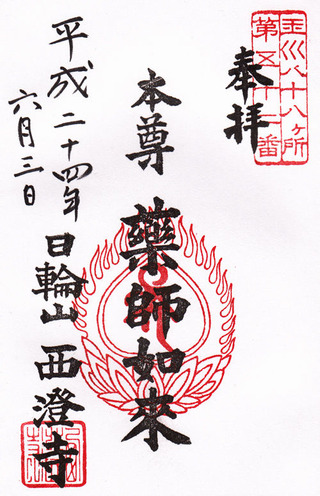 玉川八十八ヶ所
第五十一番
奉拝
本尊 藥師如来
日輪山 西澄寺
平成二十四年
六月三日